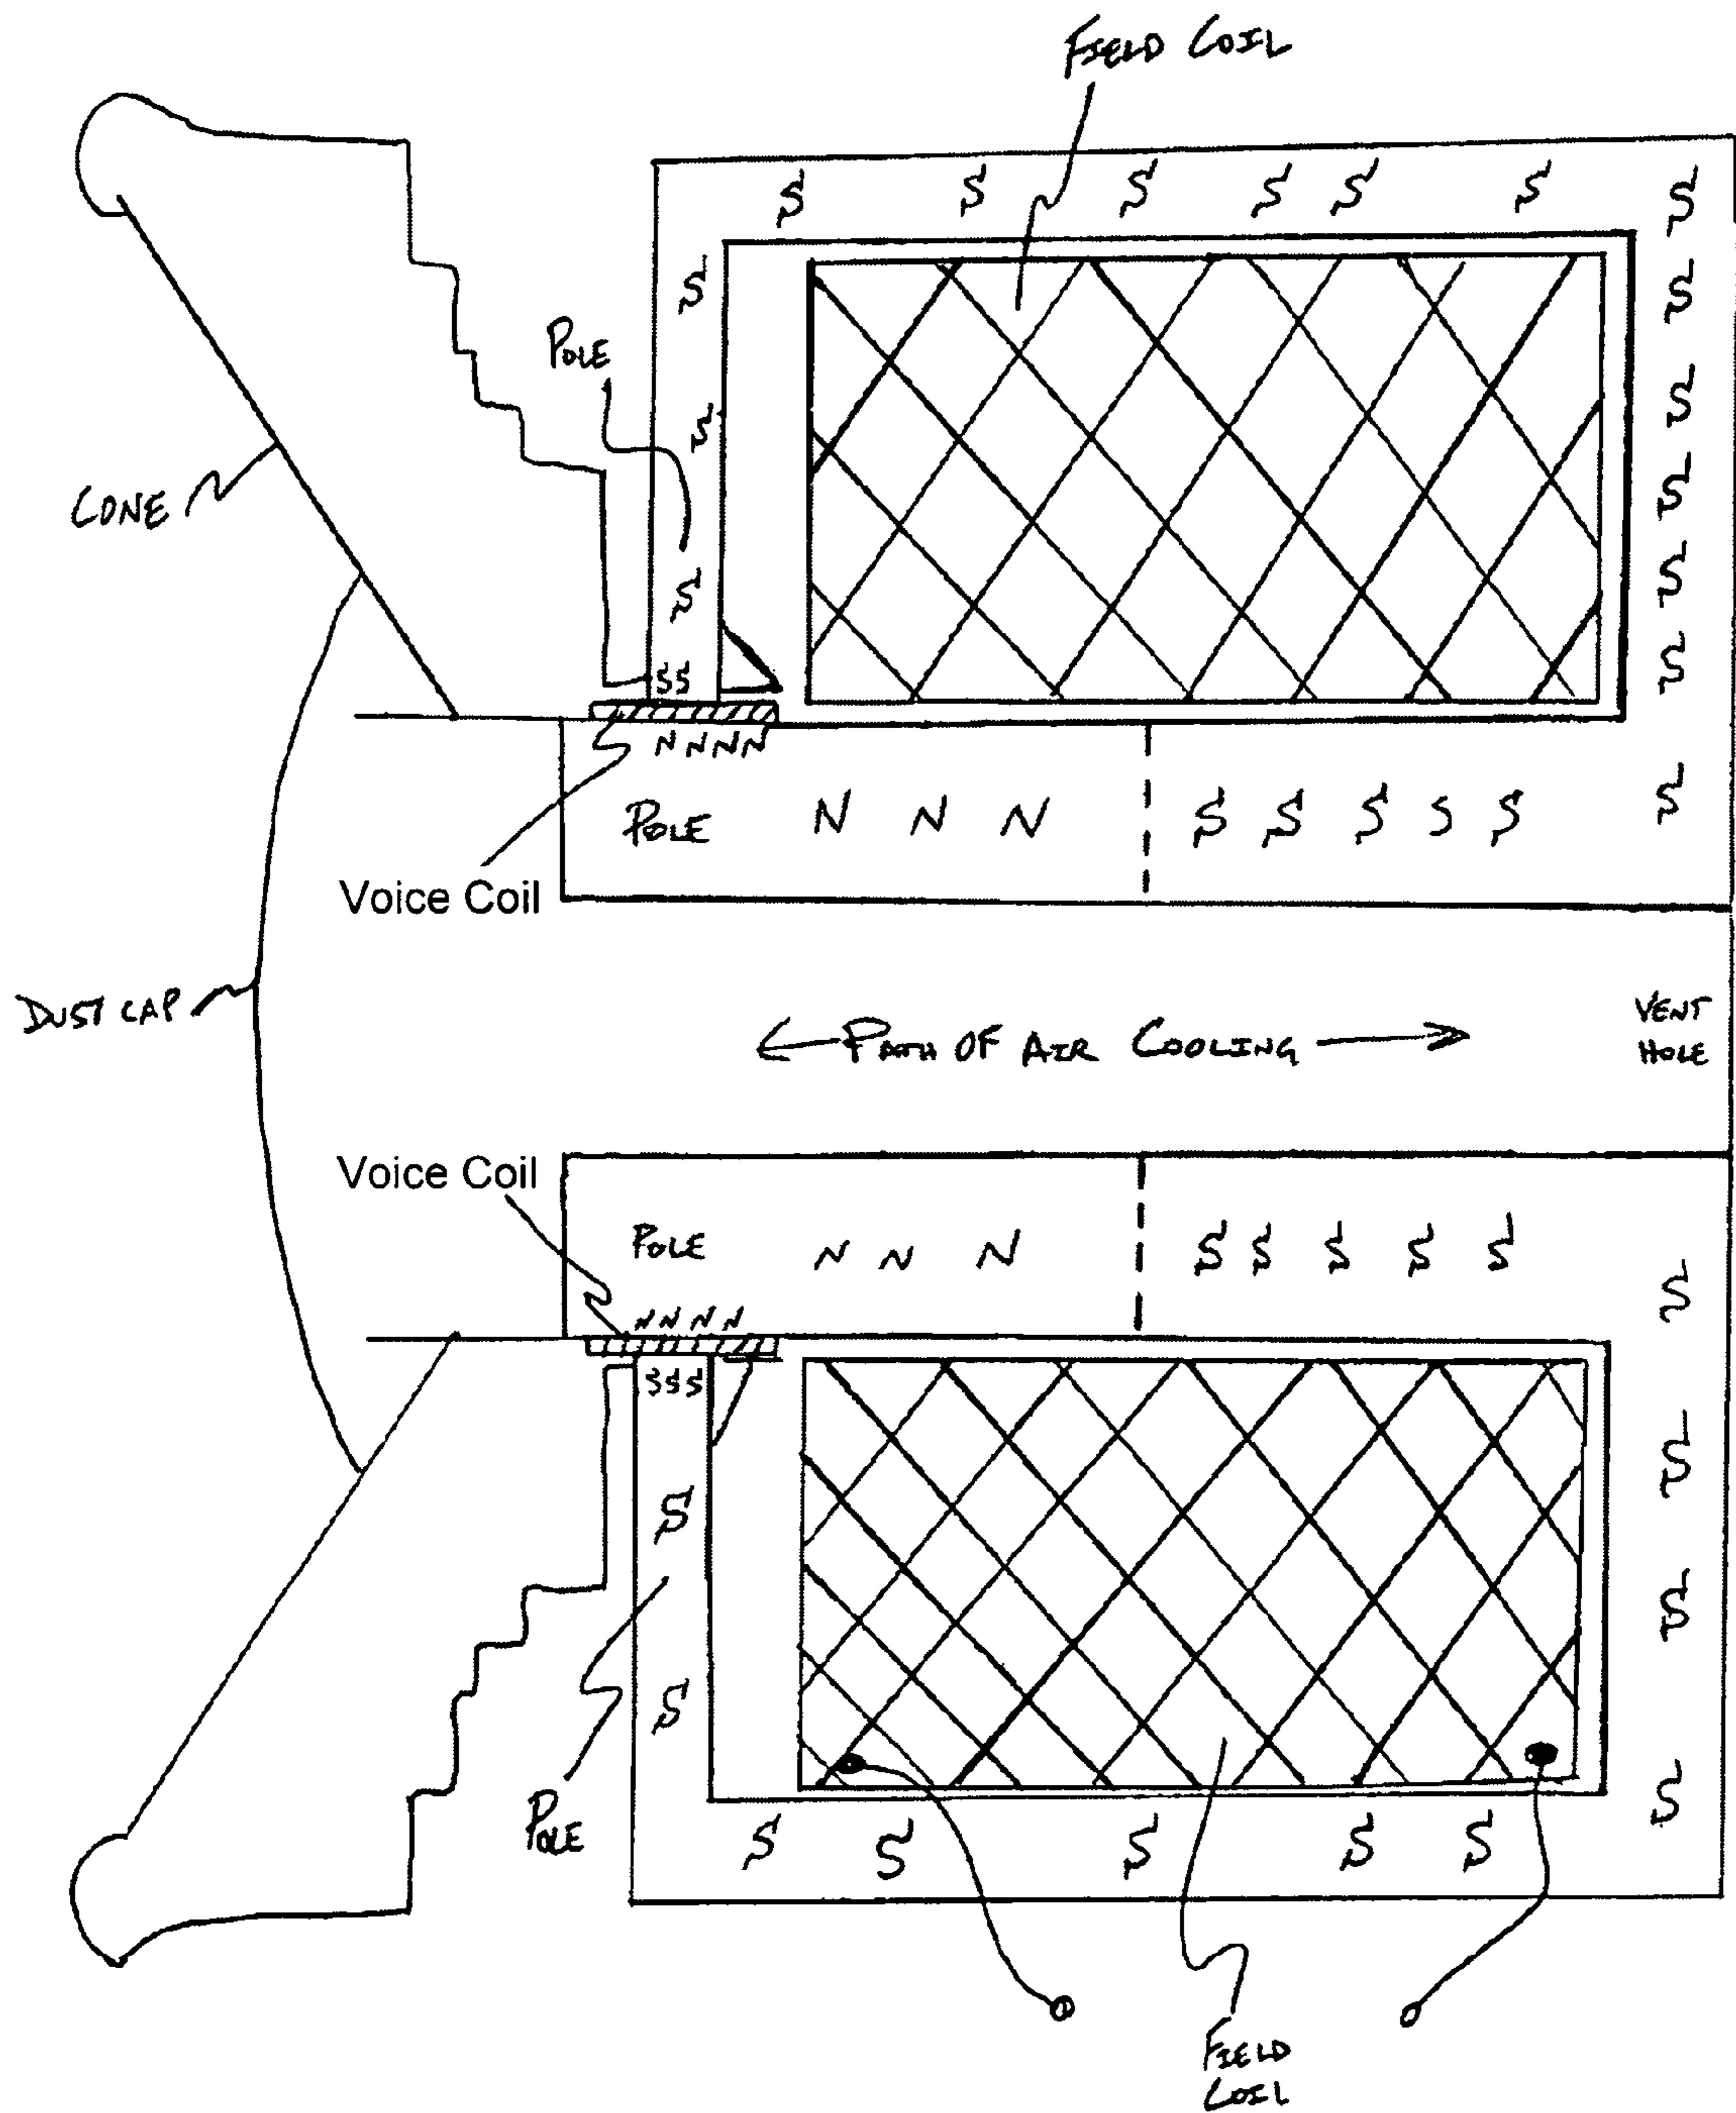 FIELD COIL
S S S S S S S
S S
POLE
S S
CONE
S
S S
SS S
N N N N
POLE N N N S S S S S S
Voice Coil
DUST CAP
← PATH OF AIR COOLING →
VENT
HOLE
Voice Coil
POLE N N N S S S S S
S
N N N N
SSS
S
S
S
S
POLE
S S S S S S
FIELD
COIL